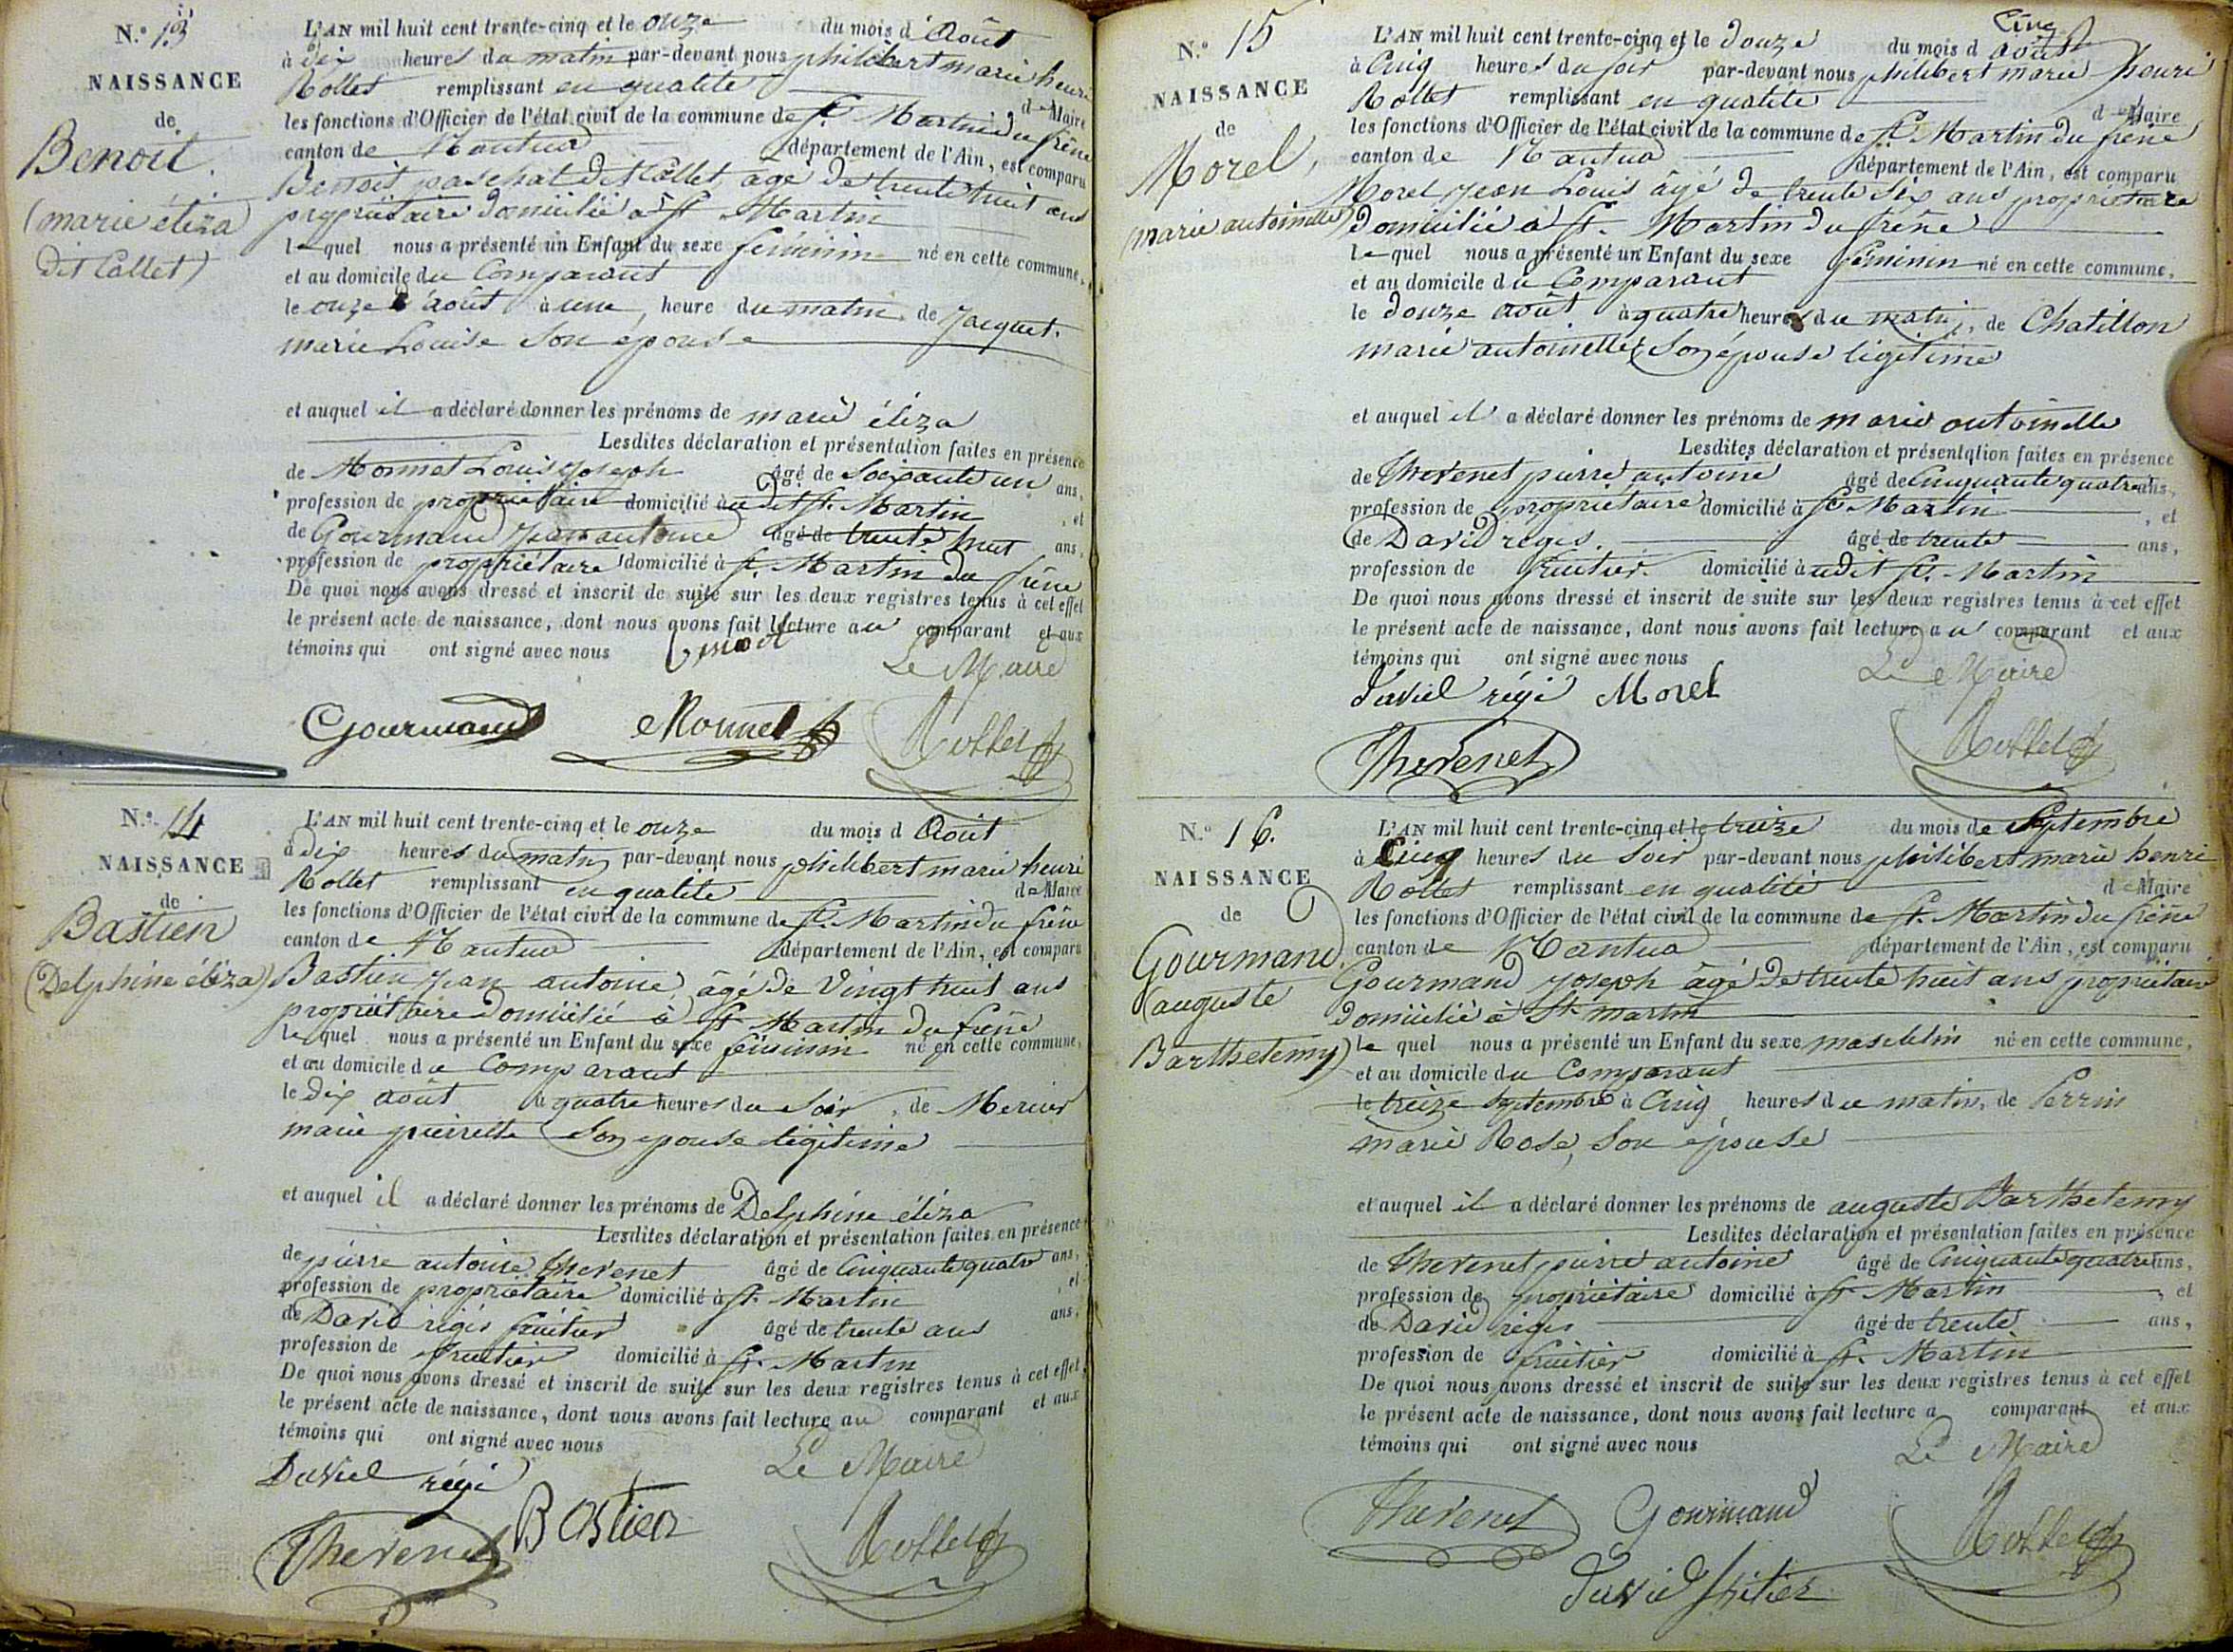 N.º 13
NAISSANCE
de
Benoit
(marie éliza
dit Collet)
L'AN mil huit cent trente-cinq et le onze du mois d'Août
à dix heures du matin par-devant nous philibert marie henri
Rollet remplissant en qualité de Maire
les fonctions d'Officier de l'état civil de la commune de St. Martin du frêne
canton de Nantua département de l'Ain, est comparu
Benoit paschal dit Collet, age de trente huit ans
propriétaire domicilié à St Martin
lequel nous a présenté un Enfant du sexe féminin né en cette commune,
et au domicile du Comparant
le onze août à une heure du matin de Jacquet
marie Louise son épouse
et auquel il a déclaré donner les prénoms de marie éliza
Lesdites déclaration et présentation faites en présence
de Monnet Louis Joseph âgé de Soixante un ans,
profession de propriétaire domicilié audit St. Martin, et
de Gourmand Jean antoine âgé de trente huit ans,
profession de propriétaire domicilié à St. Martin du frêne
De quoi nous avons dressé et inscrit de suite sur les deux registres tenus à cet effet
le présent acte de naissance, dont nous avons fait lecture au comparant et aux
témoins qui ont signé avec nous
Le Maire
Gourmand Monnet Rollet
N.º 14
NAISSANCE
de
Bastien
(Delphine éliza)
L'AN mil huit cent trente-cinq et le onze du mois d Août
à dix heures du matin par-devant nous philibert marie henri
Rollet remplissant en qualité de Maire
les fonctions d'Officier de l'état civil de la commune de St. Martin du frêne
canton de Nantua département de l'Ain, est comparu
Bastien jean antoine âgé de Vingt huit ans
propriétaire domicilié à St Martin du frêne
lequel nous a présenté un Enfant du sexe féminin né en cette commune,
et au domicile du Comparant
le dix août à quatre heures du Soir, de Mercier
marie pierrette Son epouse légitime
et auquel il a déclaré donner les prénoms de Delphine éliza
Lesdites déclaration et présentation faites en présence
de pierre antoine thevenet âgé de Cinquante quatre ans,
profession de propriétaire domicilié à St. Martin, et
de David régis fruitier âgé de trente ans ans,
profession de fruitier domicilié à St. Martin
De quoi nous avons dressé et inscrit de suite sur les deux registres tenus à cet effet
le présent acte de naissance, dont nous avons fait lecture au comparant et aux
témoins qui ont signé avec nous
Le Maire
David régi
Thevenet Bastien Rollet
N.º 15
NAISSANCE
de
Morel,
(marie antoinette)
Cinq
L'AN mil huit cent trente-cinq et le douze du mois d août
à Cinq heures du soir par-devant nous philibert marie henri
Rollet remplissant en qualité de Maire
les fonctions d'Officier de l'état civil de la commune de St. Martin du frêne
canton de Nantua département de l'Ain, est comparu
Morel Jean Louis âgé de trente Six ans propriétaire
domicilié à St. Martin du frêne
lequel nous a présenté un Enfant du sexe féminin né en cette commune,
et au domicile du Comparant
le douze août à quatre heures du matin, de Chatillon
marie antoinette Son épouse légitime
et auquel il a déclaré donner les prénoms de marie antoinette
Lesdites déclaration et présentation faites en présence
de Thevenet pierre antoine âgé de Cinquante quatre ans,
profession de propriétaire domicilié à St Martin, et
de David regis. âgé de trente ans,
profession de fruitier domicilié audit St. Martin
De quoi nous avons dressé et inscrit de suite sur les deux registres tenus à cet effet
le présent acte de naissance, dont nous avons fait lecture au comparant et aux
témoins qui ont signé avec nous
Le Maire
David régi Morel
Thevenet Rollet
N.º 16.
NAISSANCE
de
Gourmand
(auguste
Barthelemy)
L'AN mil huit cent trente-cinq et le treize du mois de Septembre
à Cinq heures du Soir par-devant nous philibert marie henri
Rollet remplissant en qualité de Maire
les fonctions d'Officier de l'état civil de la commune de St. Martin du frêne
canton de Nantua département de l'Ain, est comparu
Gourmand joseph âgé de trente huit ans propriétaire
domicilié à St martin
le quel nous a présenté un Enfant du sexe masculin né en cette commune,
et au domicile du Comparant
le treize Septembre à Cinq heures du matin, de Perrin
marie Rose, Son épouse
et auquel il a déclaré donner les prénoms de auguste Barthelemy
Lesdites déclaration et présentation faites en présence
de Thevenet pierre antoine âgé de Cinquante quatre ans,
profession de propriétaire domicilié à St Martin, et
de David régis âgé de trente ans,
profession de fruitier domicilié à St. Martin
De quoi nous avons dressé et inscrit de suite sur les deux registres tenus à cet effet
le présent acte de naissance, dont nous avons fait lecture a comparant et aux
témoins qui ont signé avec nous
Le Maire
Thevenet Gourmand Rollet
David